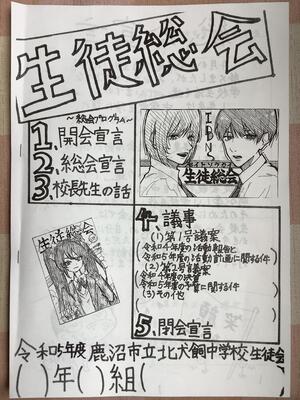 生徒総会
～総会プログラム～
1.開会宣言
2.総会宣言
3.校長先生の話
生徒総会
生徒総会
4.議事
(1)第1号議案
令和4年度の活動報告と
令和5年度の活動計画に関する件
(2)第2号議案
令和4年度の決算
令和5年度の予算に関する件
(3)その他
5.閉会宣言
令和5年度 鹿沼市立北犬飼中学校生徒会
( )年( )組(